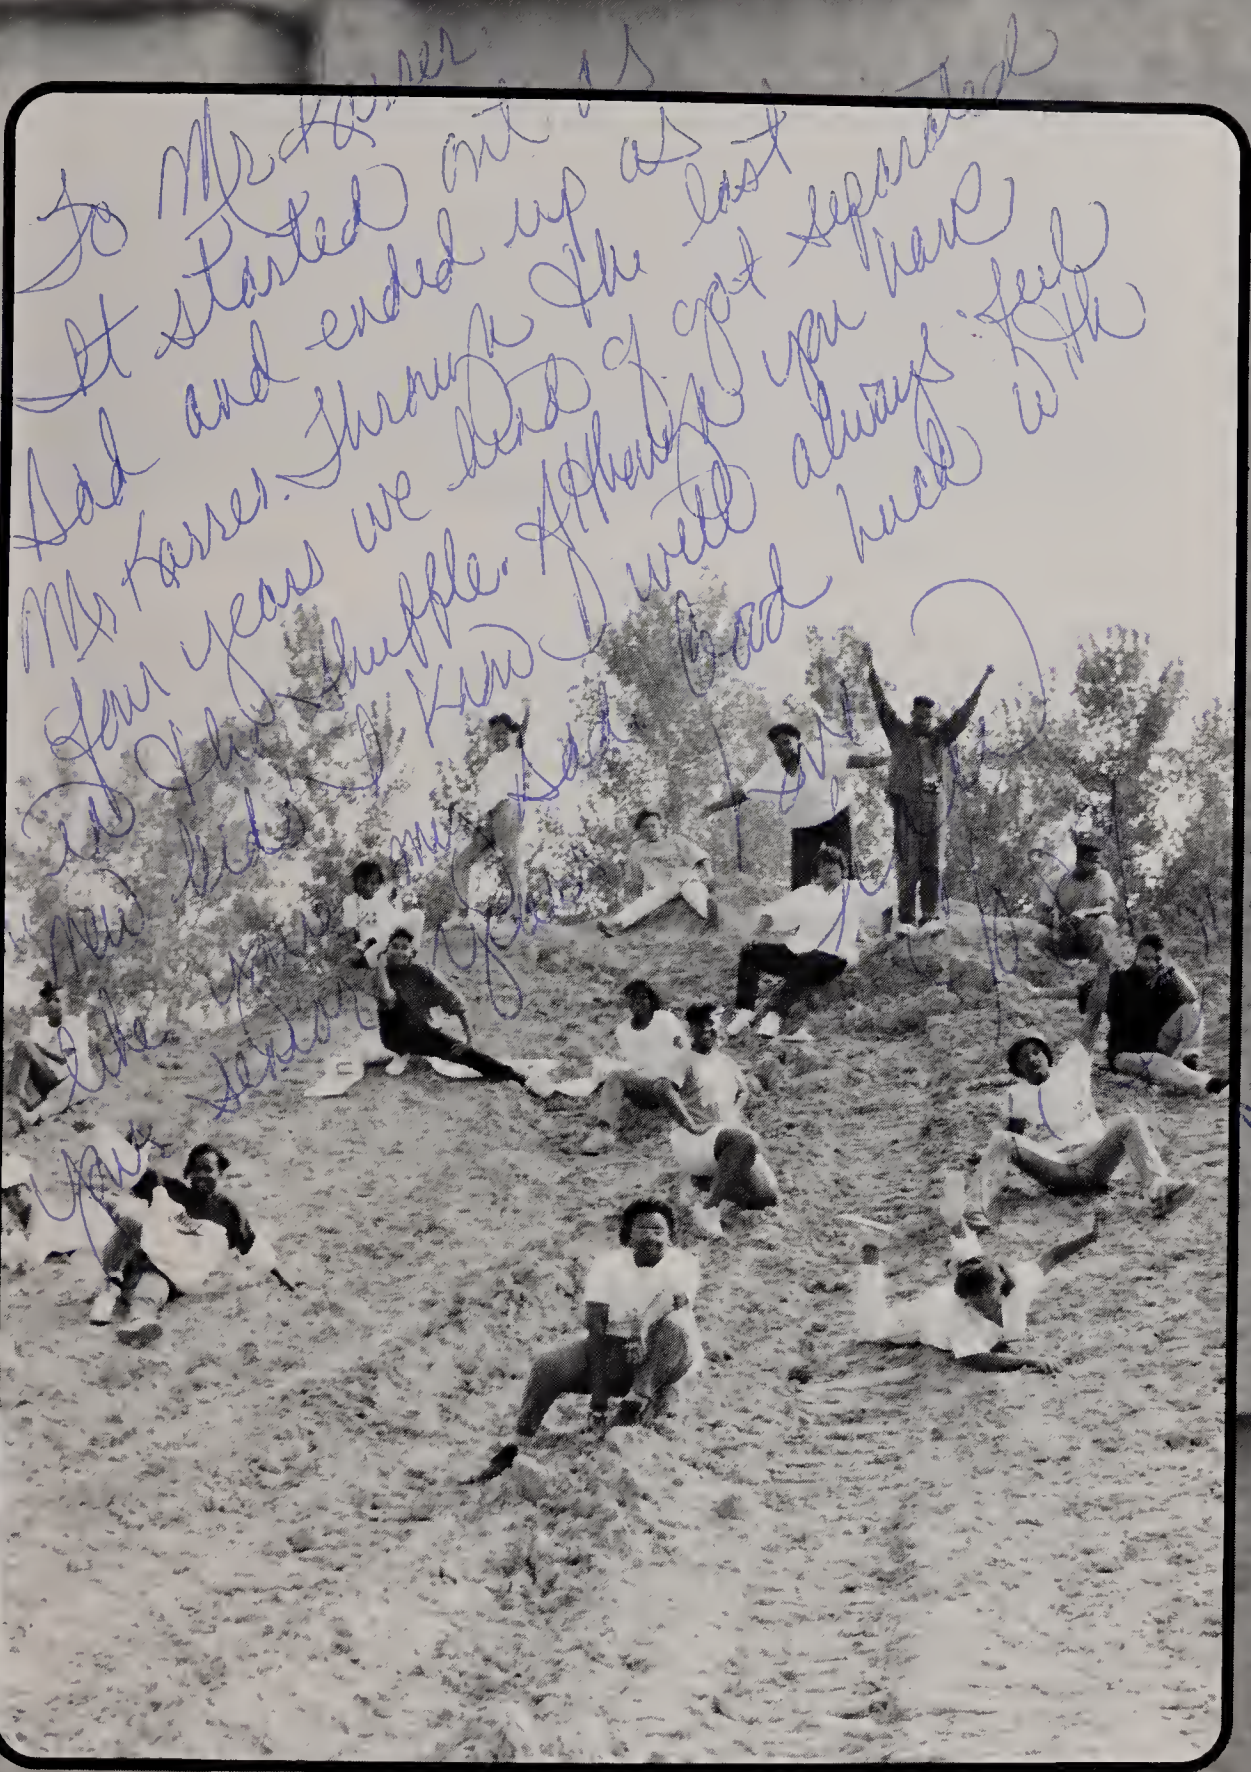 To Mr. Karres
It started out as
Dad and ended up as
Mr Karres. Through the last
four years we kind of got separated
in the shuffle. Although you have
new kids I know I will always feel
like you're my Dad. Good luck with
your senior